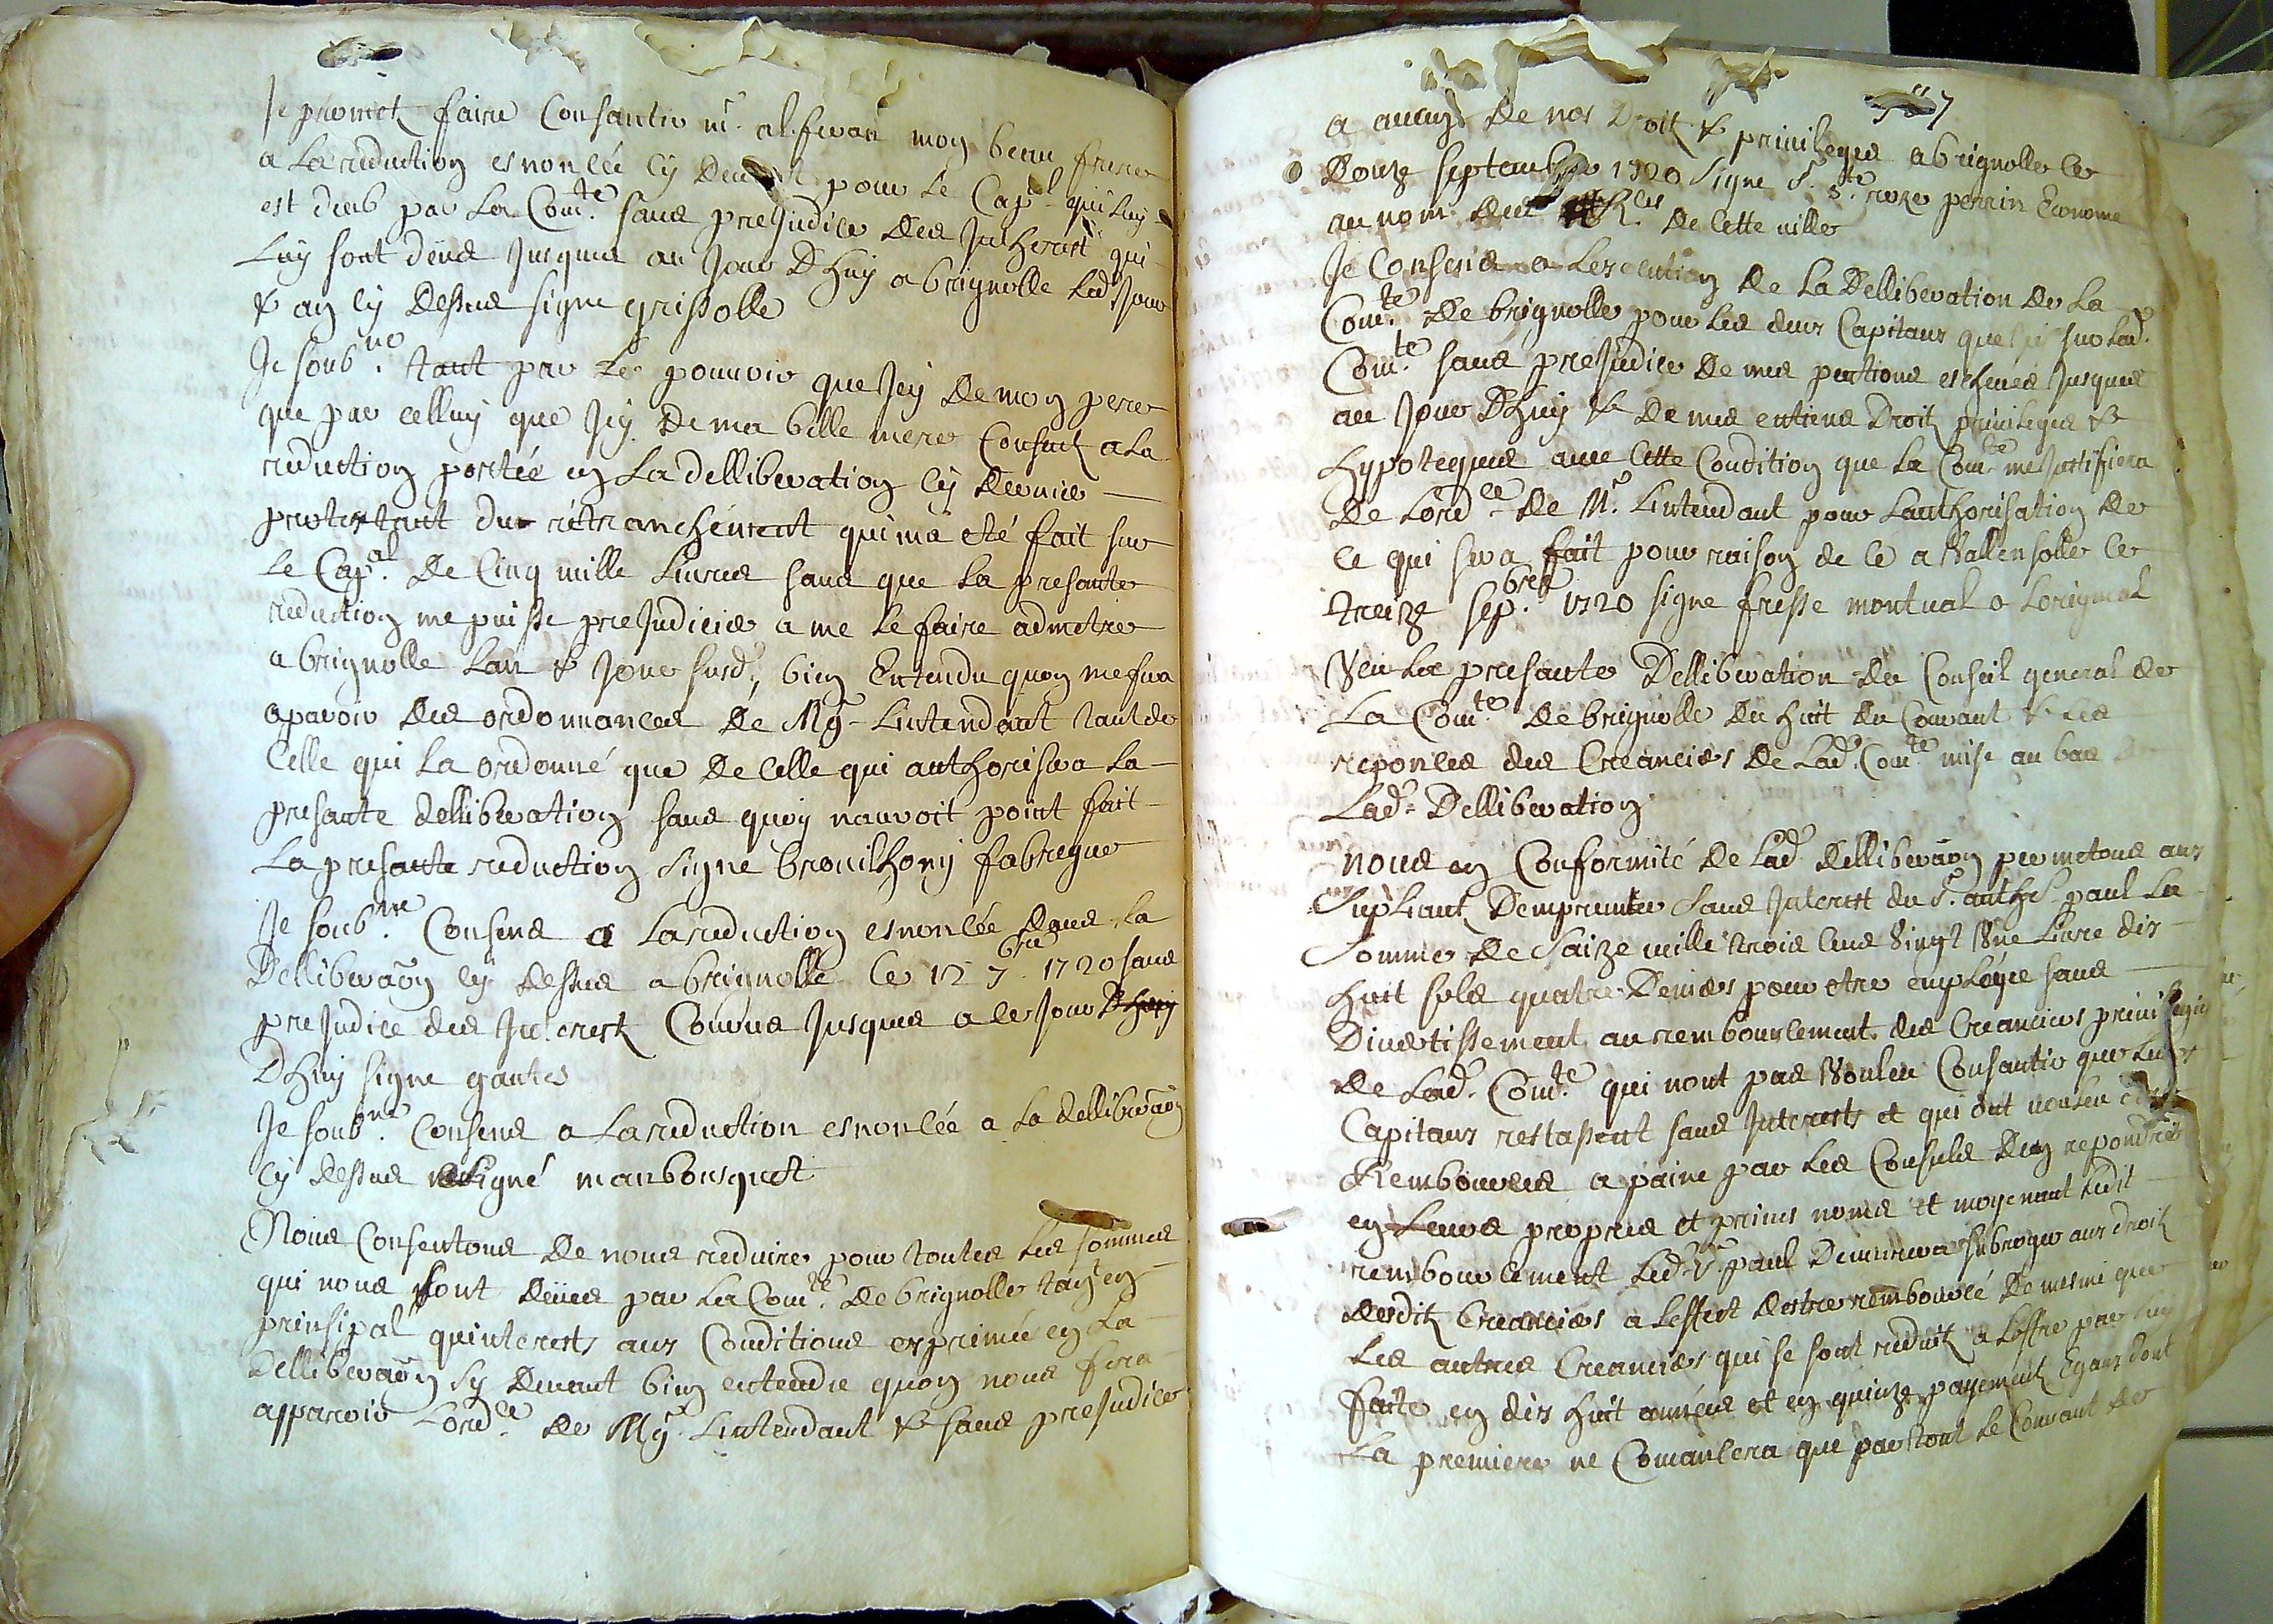 Je promet faire Consantir mr. alferan mon beau frere
a La reduction esnoncée cy Devant pour le Cap.l qui luy
est deub par La Com.te sans preJudice des Jntherest qui
Luy sont deues Jusques au Jour Dhuy a brignolle Led Jour
& an cy dessus signe grissolle
Je soub.ne tant par Le pouvoir que Jey de mon pere
que par celluy que Jey de ma belle mere Consent a La
reduction portée en La delliberation cy dernier
protestant du retranchement qui ma eté fait sur
Le Cap.al De Cinq mille Livres sans que La presante
reduction me puisse preJudicier a me Le faire admetre
a brignolle Lan & Jour susd., bien Entendu quon me fera
aparoir des ordonnances De Mgr Lintendant tant de
Celle qui La ordonné que De Celle qui authorisera La
presante delliberation sans quoy nauroit point fait
La presante reduction signe brouilhony fabregue
Je soub.ne Consens a La reduction esnoncée dans La
Delliberaon cy dessus a brignolle le 12 7.bre 1720 sans
preJudice des Jnterest Courus Jusques a ce Jour Dhuy
Dhuy signe gantes
Je soub.ne Consens a La reduction esnoncée a La delliberaon
cy dessus signé maubousquet
Nous Consentons De nous reduire pour toutes Les sommes
qui nous sont deües par La Com.te De brignolle tant en
prinsipal quinterests aux Conditions exprimée en La
Delliberaon sy Devant bien entendu quon nous fera
apparoir Lord.ce De Mgr. Lintendant & sans preJudice
a aucuns De nos Droit & privileges a brignolle Le
Douze septembre 1720 signe S. S.te perrin Econome
au nom des R.ses De Cette ville
Je Consens a Lexecution De La Delliberation De La
Com.te De brignolle pour Les deux Capitaux que sur Lad.
Com.te sans preJudice De mes pentions escheues Jusques
au Jour Dhuy & De mes entiers Droit privileges &
hypoteques avec Cette Condition que La Com.te me Justifiera
De Lord.ce De Mr. Lintendant pour Lauthorisation De
Ce qui sera fait pour raison de Ce a Vallensolle Le
treize sep.bre 1720 signe fresse montual a Loriginal
Veu La presante Delliberation du Conseil general De
La Com.te De brignolle Du huit du Courant & Les
reponces des Creanciers De Lad. Com.te mise au bas
Lad. Delliberation
nous en Conformité De Lad. delliberaon permetons aux
Supliant Demprunter Sans Jnterest du Sr. paul La
Somme De Saize mille trois Cens Vingt Une Livre dix
huit sols quatre Deniers pour etre employée sans
Divertissement au remboursement des Creanciers privilegiés
De Lad. Com.te qui nont pas Vouleu Consantir que Leurs
Capitaux restassent sans Jnterests et qui ont vouleu estre
Rembources a paine par Les Consuls Den repondre
en Leurs propres et privés noms et moyenant Ledit
remboursement Led. Sr. paul Demurera subrogé aux droit
desdit Creanciers a Leffect destre remboursé De mesme que
Les autres Creanciers qui se sont reduit a Loffre par
faite en dix huit années et en quinze payement Egaux dont
La premiere ne Comancera que par tout Le Courant De